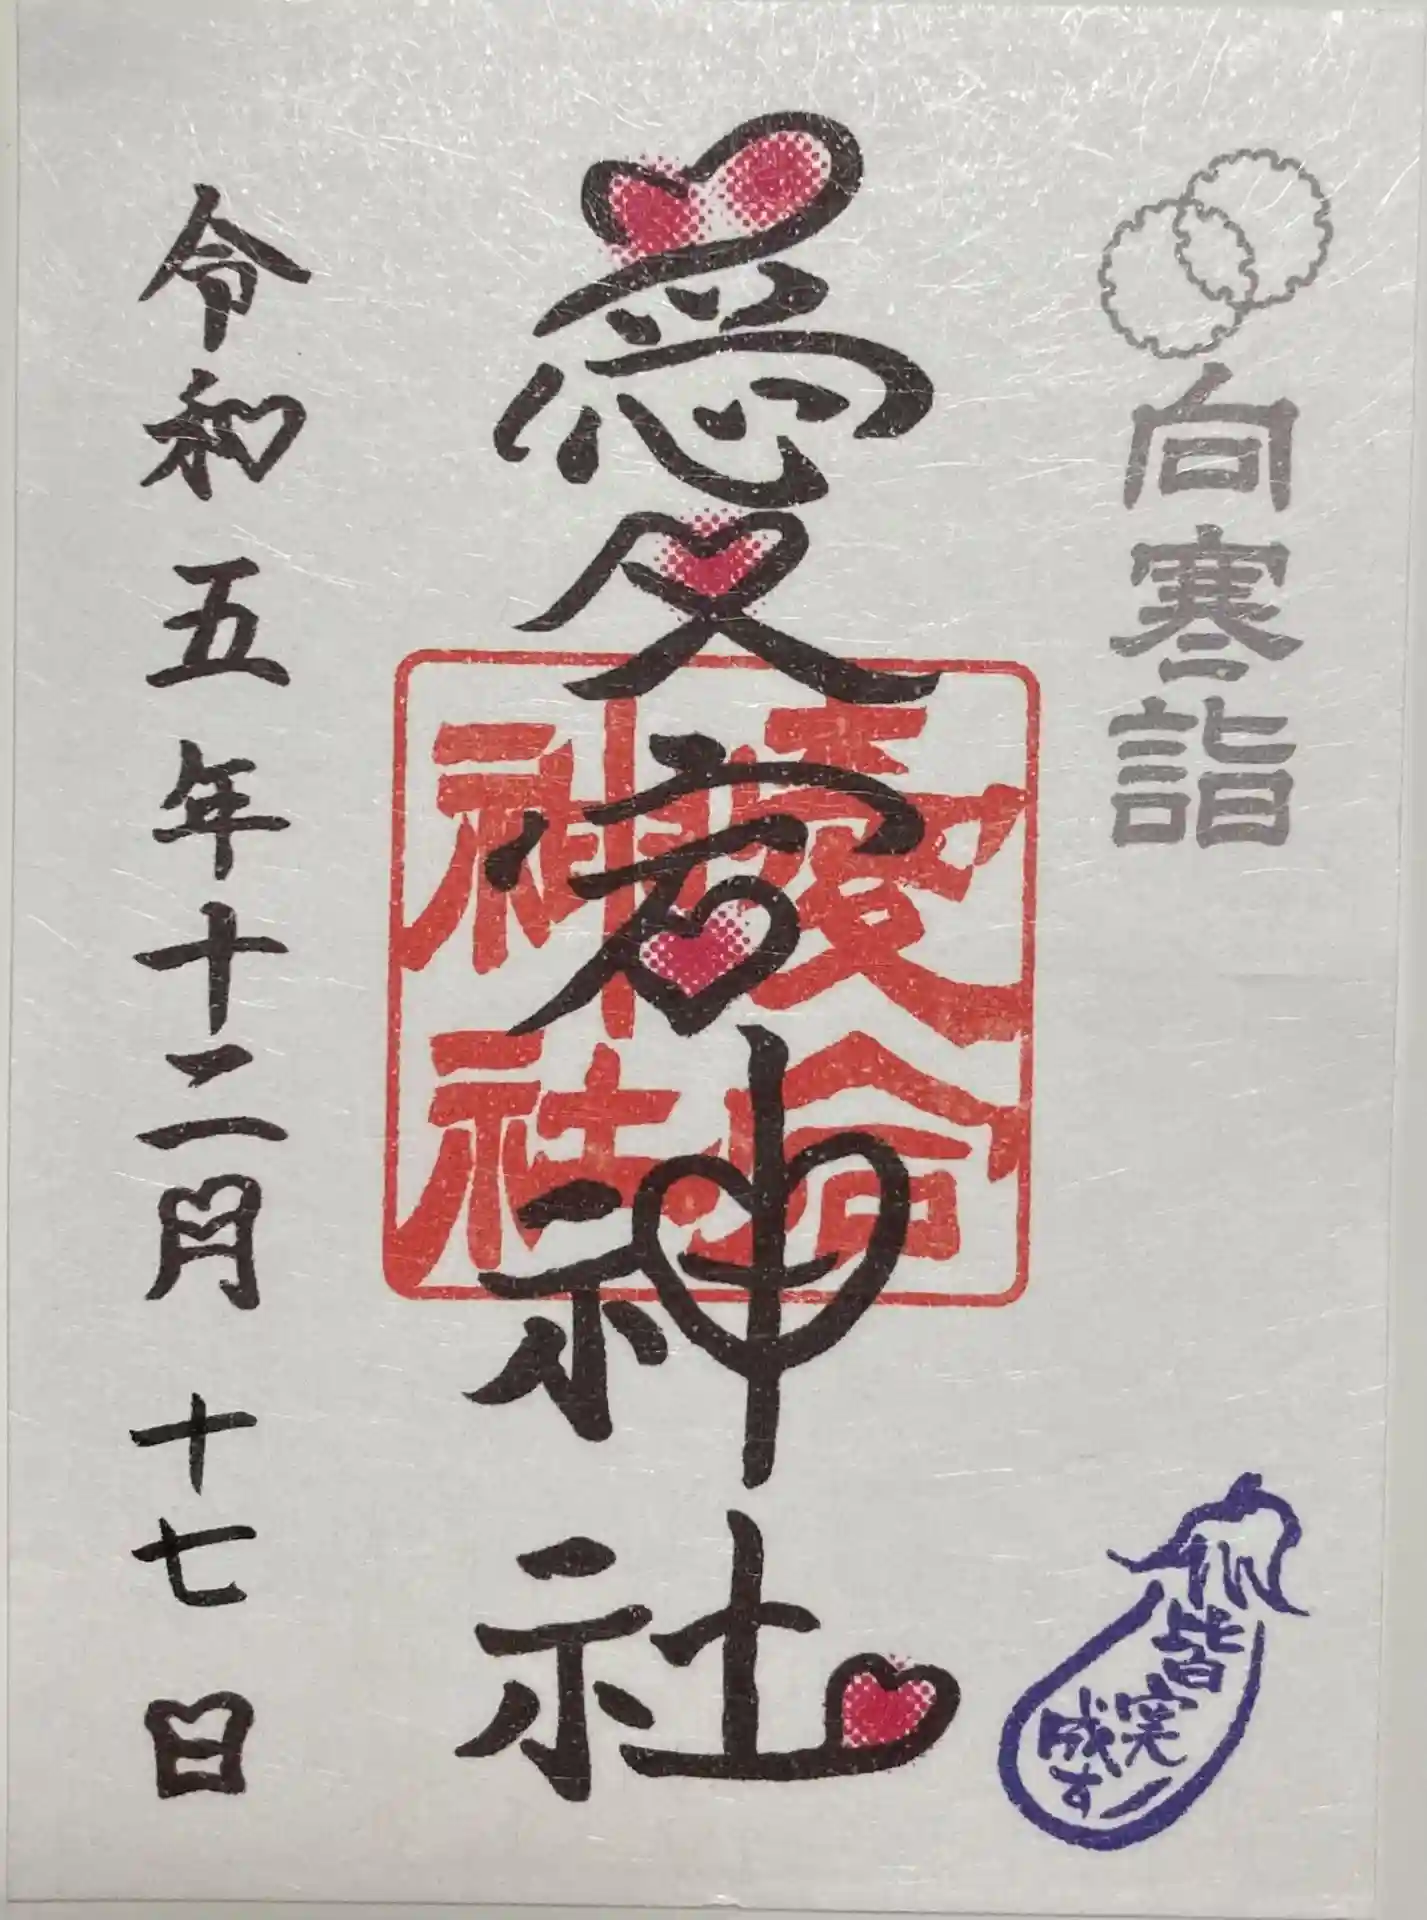 向寒詣
皆
実
成す
愛宕神社
愛宕
神社
令和五年十二月十七日